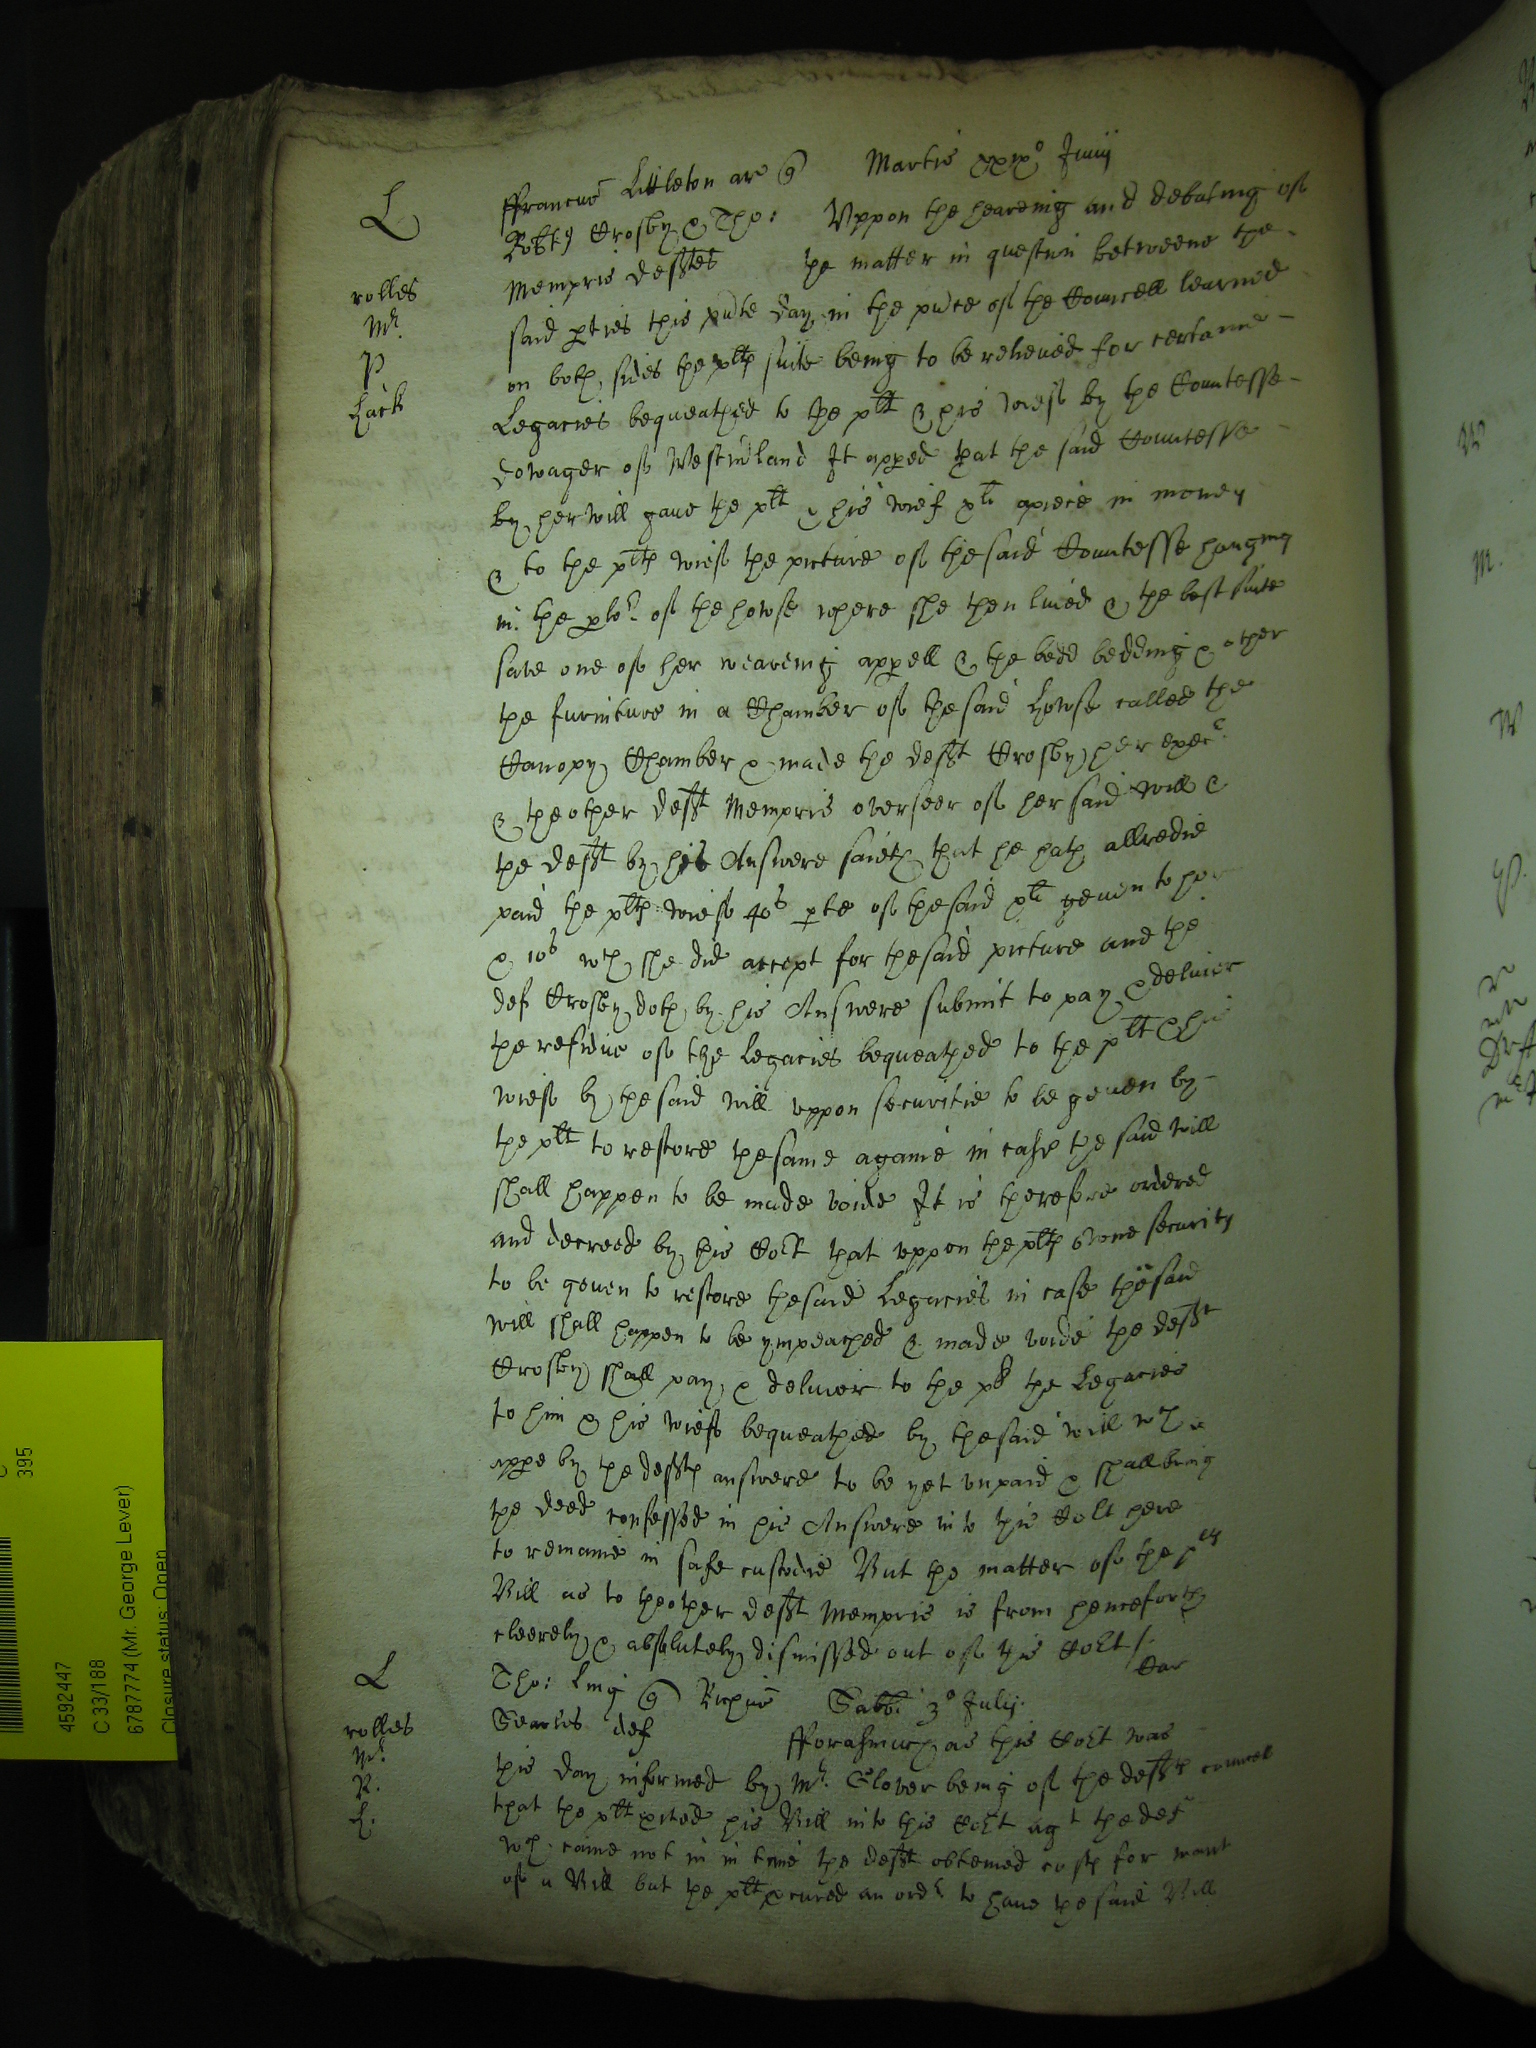 L
ffrancus Littleton ar q Martis xxixo Junij
Robt Crosby & Tho: Vppon the heareing and debating of
Mempris deftes the matter in question betweene the
rolles
said pties this pnte day in the pnce of the Councell learned
Mr.
on both sides the plts suite being to be releived for certaine
P
Legacies bequeathed to the plt & his wief by the Countesse
Hack
dowager of Westmland It apped that the said Countesse
by her will gave the plt & his wief xli apiece in money
& to the plts wief the picture of the said Countesse hanging
in the plor of the howse where she then lived & the best suite
save one of her weareing appell & the bedd bedding & other
the furniture in a Chamber of the said howse called the
Canopy Chamber & made the deft Crosby her exec
& the other deft Mempris overseer of her said will &
the deft by his Answere saieth that he hath allredie
paid the plts wief 40s pte of the said xli geven to her
& 10s wch she did accept for the said picture and the
def Crosby doth by his Answere submit to pay & deliver
the residue of the Legacies bequeathed to the plt & his
wief by the said will vppon securitie to be geven by
the plt to restore the same againe in case the said will
shall happen to be made voide It is therefore ordered
and decreed by this Cort that vppon the plts owne security
to be geven to restore the said Legacies in case the said
will shall happen to be ympeached & made voide the deft
Crosby shall pay & deliver to the plt the Legacies
to him & his wief bequeathed by the said will wch
appe by the defts answere to be yet vnpaid & shall bring
the deed confessed in his Answere into this Cort here
to remaine in safe custodie But the matter of the
Bill as to the other deft Mempris is from henceforth
cleerely & absolutely dismissed out of this Cort /.
L
Tho: King q Richus Sabbi 3o Julij
rolles
Searles def fforasmuch as this Cort was
Mr.
this day informed by Mr. Glover being of the defts councell
R.
that the plt exited his Bill into this Cort agt the def
H.
wch came not in in time the deft obteined costs for want
of a Bill but the plt pcured an ordr to have the said Bill
395
4592447
C 33/188
6787774 (Mr. George Lever)
Closure status: Open